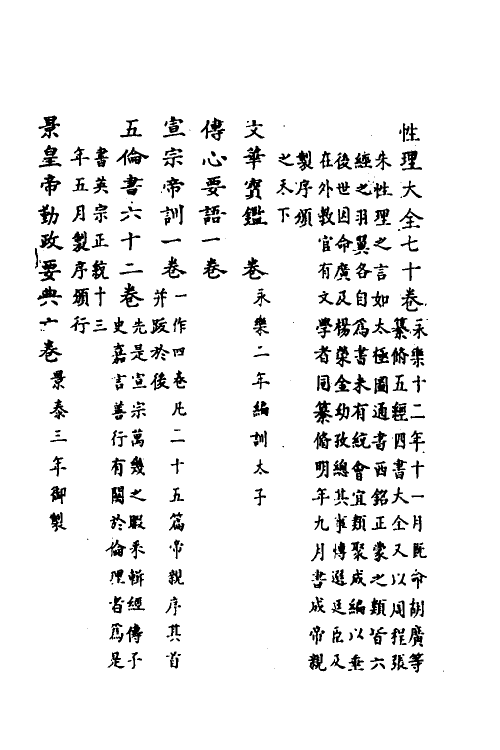 性理大全七十卷永樂十二年十一月既命胡廣等
纂脩五經四書大全又以周程張
朱性理之言如太極圖通書西銘正蒙之類皆六
經之羽翼各自為書未有統會宜類聚成編以垂
後世因命廣及楊榮金幼孜總其事傳選廷臣及
在外教官有文學者同纂脩明年九月書成帝親
製序頒
之天下
文華寶鑑　卷永樂二年編訓太子
傳心要語一卷
宣宗帝訓一卷一作四卷凡二十五篇帝親序其首
并跋於後
五倫書六十二卷先是宣宗萬幾之暇采輯經傳子
史嘉言善行有關於倫理者為是
書英宗正統十三
年五月製序頒行
景皇帝勤政要典六卷景泰三年御製